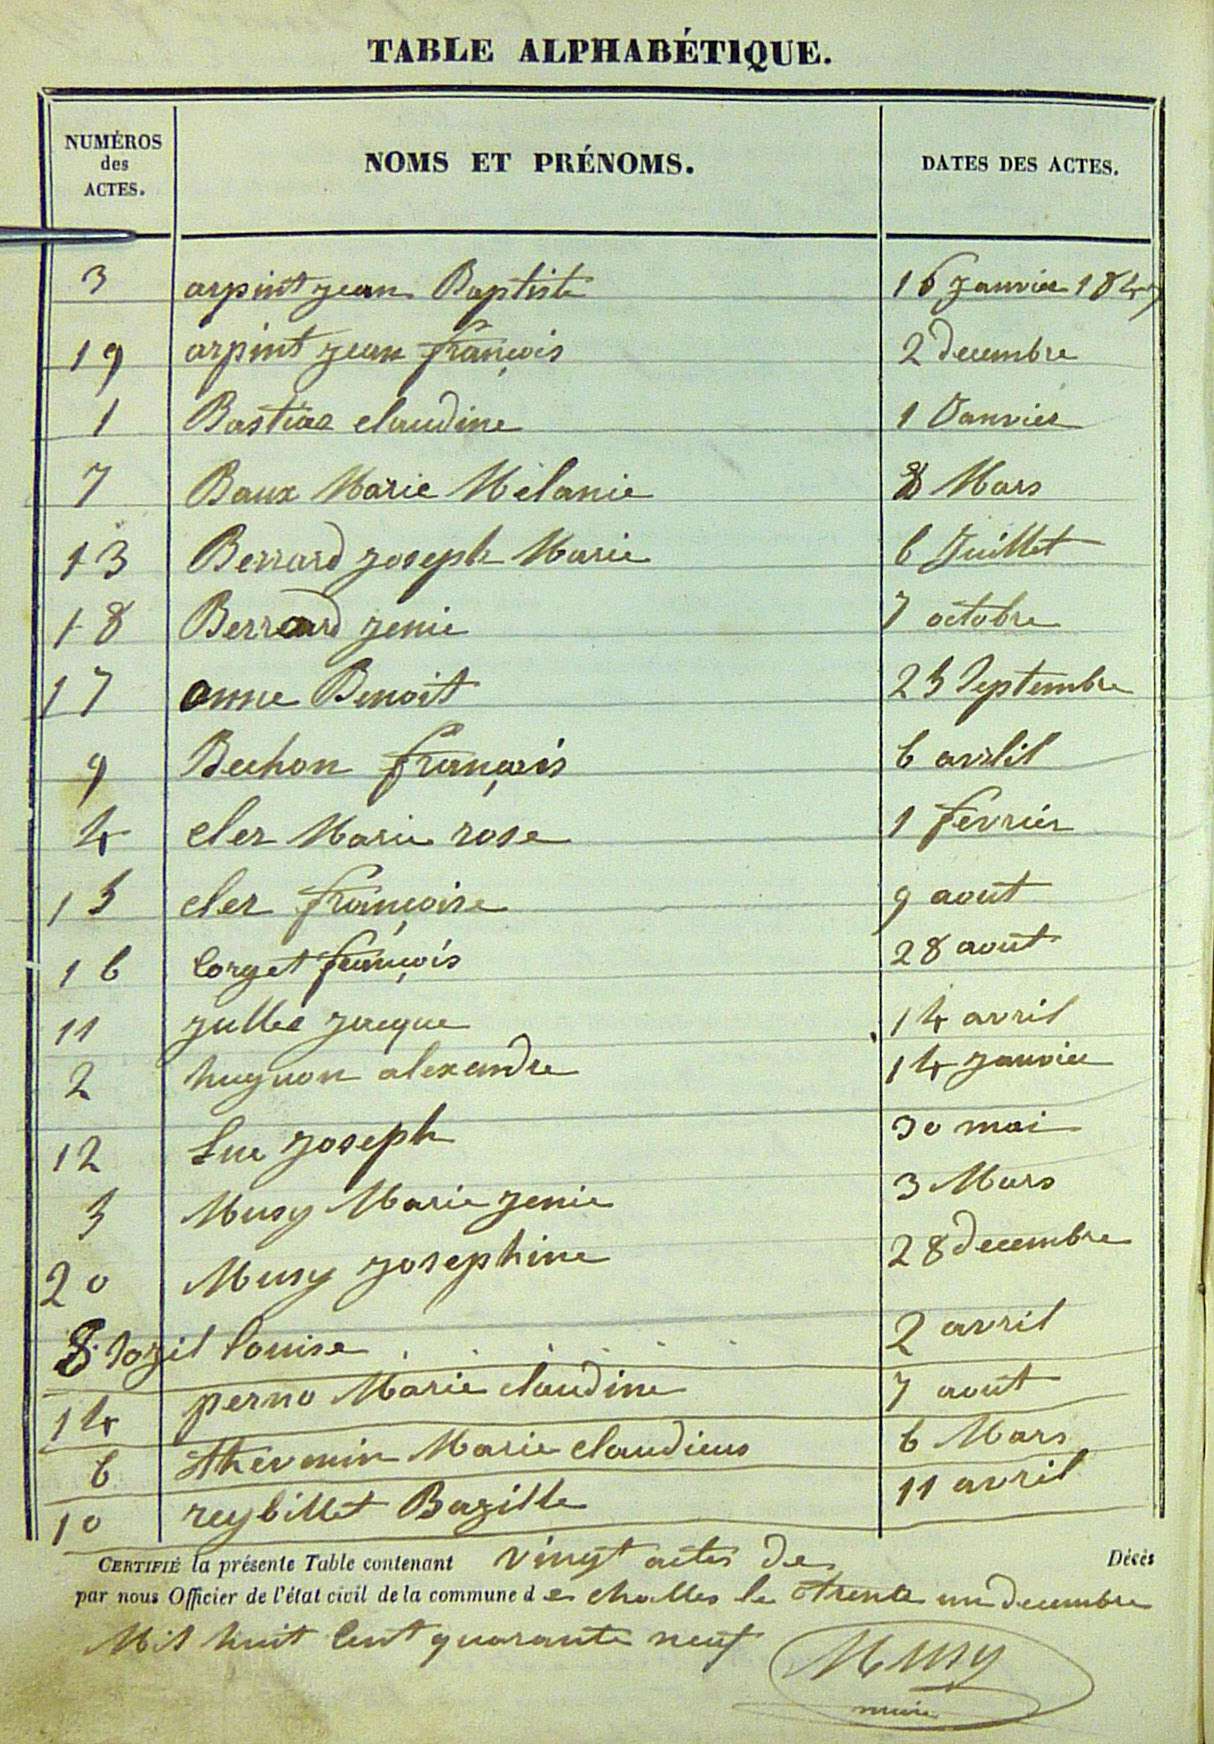 TABLE ALPHABÉTIQUE.
NUMÉROS des ACTES. NOMS ET PRÉNOMS. DATES DES ACTES.
3 arpint jean Baptiste 16 janvier 1849
19 arpint jean françois 2 decembre
1 Bastiae claudine 1 Janvier
7 Baux Marie Mélanie 8 Mars
13 Berrard joseph Marie 6 Juillet
18 Berrard jenie 7 octobre
17 anne Benoit 25 Septembre
9 Bechon françois 6 avril
4 cler Marie rose 1 fevrier
15 cler françoise 9 aout
16 Corget françois 28 aout
11 jullie jacque 14 avril
2 hugnon alexandre 14 janvier
12 Luc joseph 30 mai
5 Musy Marie jenie 3 Mars
20 Musy josephine 28 decembre
8 Jozil louise 2 avril
14 perno Marie claudine 7 aout
6 thevenin Marie claudieus 6 Mars
10 reybillet Bazille 11 avril
CERTIFIÉ la présente Table contenant vingt actes de Décès
par nous Officier de l'état civil de la commune de challes le trente un decembre
Mil huit Cent quarante neuf
Musy
maire